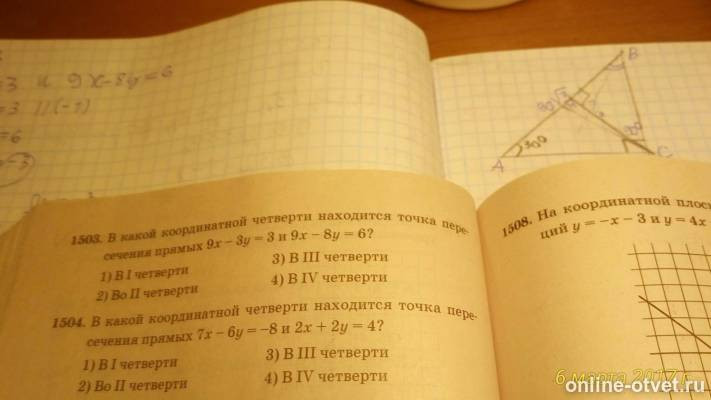 =3 и 9x-8y=6
=3 ||(-1)
=6
B
A
C
30°
1503. В какой координатной четверти находится точка пере-
сечения прямых 9x – 3y = 3 и 9x – 8y = 6?
1) В I четверти
3) В III четверти
2) Во II четверти
4) В IV четверти
1504. В какой координатной четверти находится точка пере-
сечения прямых 7x – 6y = –8 и 2x + 2y = 4?
1) В I четверти
3) В III четверти
2) Во II четверти
4) В IV четверти
1508. На координатной плос
ций y = –x – 3 и y = 4x
6 марта 2017 г.
online-otvet.ru